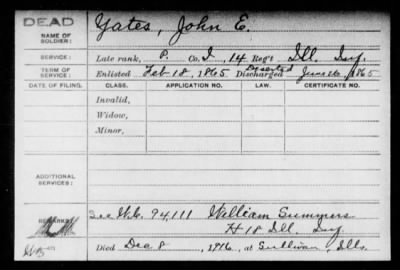 DEAD
NAME OF SOLDIER: Yates, John E.
SERVICE: Late rank, P. Co. I, 14 Reg't Ill. Inf.
TERM OF SERVICE: Enlisted Feb 18, 1865 Deserted Discharged June 26, 1865
DATE OF FILING. CLASS. APPLICATION NO. LAW. CERTIFICATE NO.
Invalid,
Widow,
Minor,
ADDITIONAL SERVICES:
REMARKS: See W.C. 94,111 William Summers
H 18 Ill. Inf.
Died Dec 8, 1916, at Sullivan, Ills.